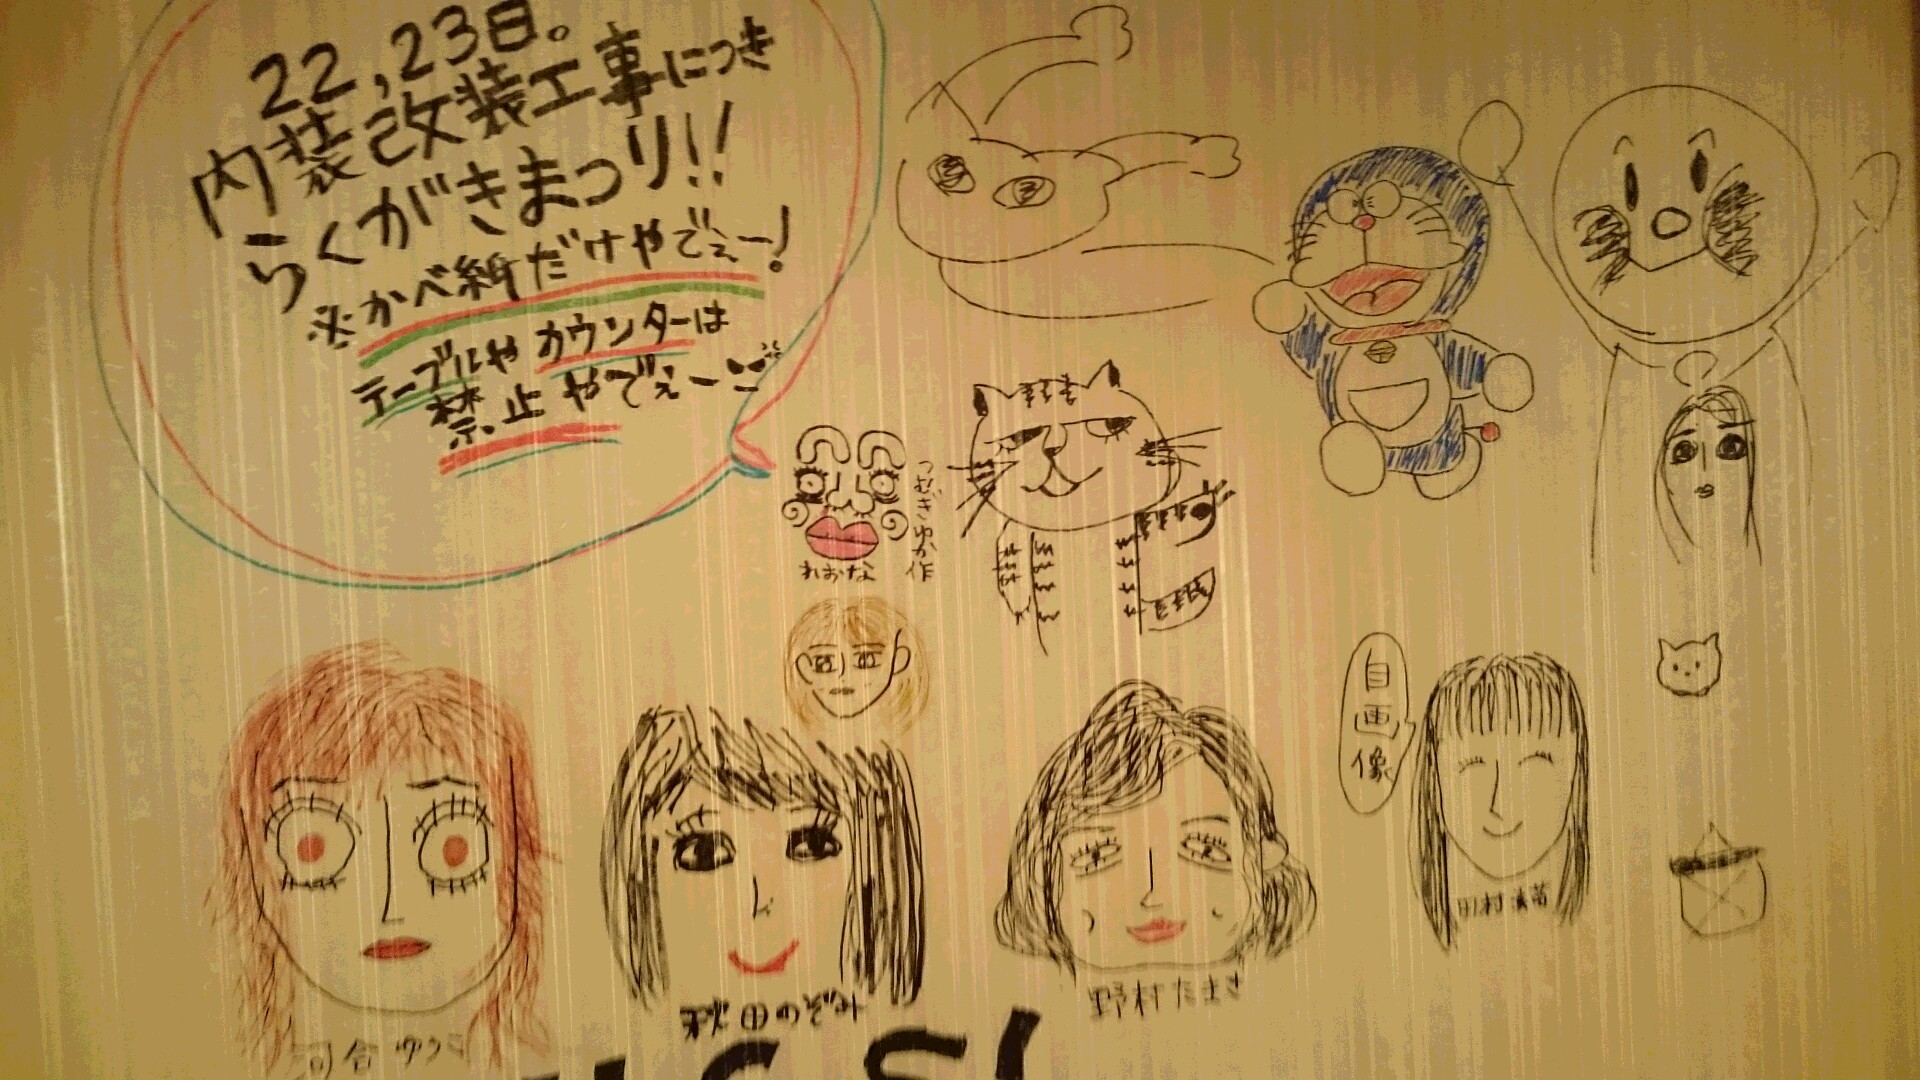 22,23日。
内装改装工事につき
らくがきまつり!!
※かべ紙だけやでぇー!
テーブルや カウンターは
禁止やでぇー
れおな
つむぎゆか作
自画像
河合ゆうこ
野村たさき